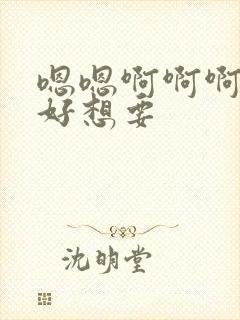 嗯嗯啊啊啊
好想要
沈明堂